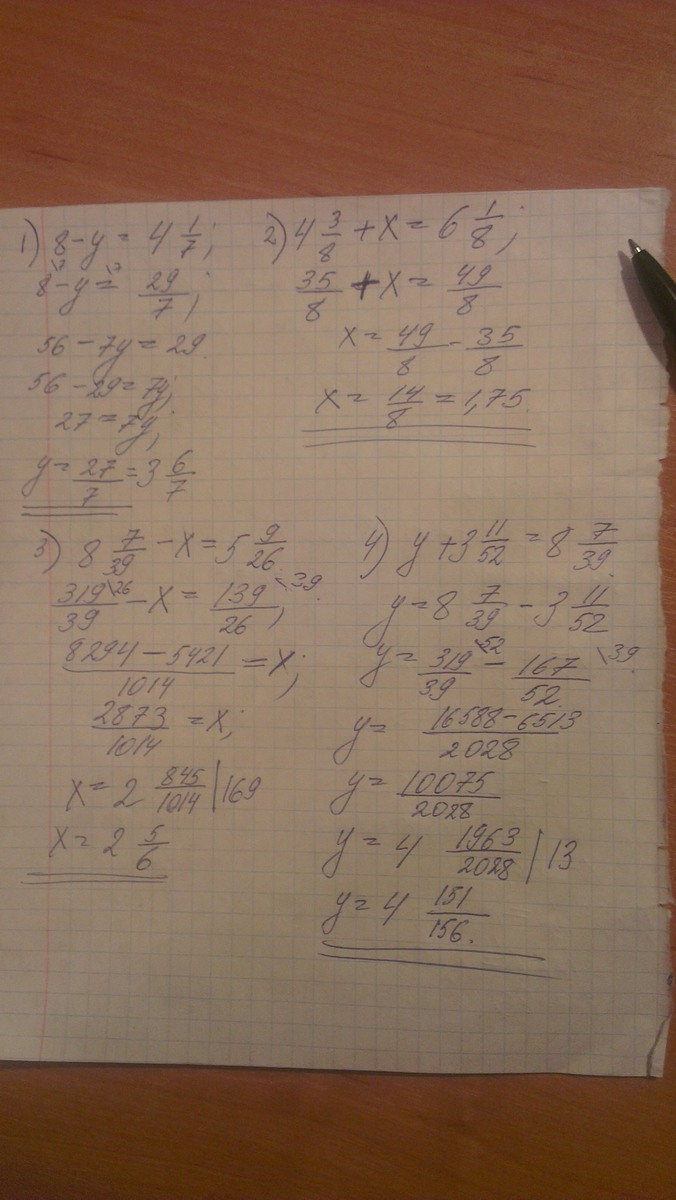 1) 8 - y = 4 1/7;
8\7 - y\7 = 29/7;
56 - 7y = 29.
56 - 29 = 7y;
27 = 7y;
y = 27/7 = 3 6/7
2) 4 3/8 + x = 6 1/8;
35/8 + x = 49/8
x = 49/8 - 35/8
x = 14/8 = 1,75
3) 8 7/39 - x = 5 9/26.
319/39\26 - x = 139/26\39;
8294 - 5421/1014 = x;
2873/1014 = x;
x = 2 845/1014 | 169
x = 2 5/6
4) y + 3 11/52 = 8 7/39.
y = 8 7/39 - 3 11/52
y = 319/39\52 - 167/52\39.
y = 16588 - 6513/2028
y = 10075/2028
y = 4 1963/2028 | 13
y = 4 151/156.